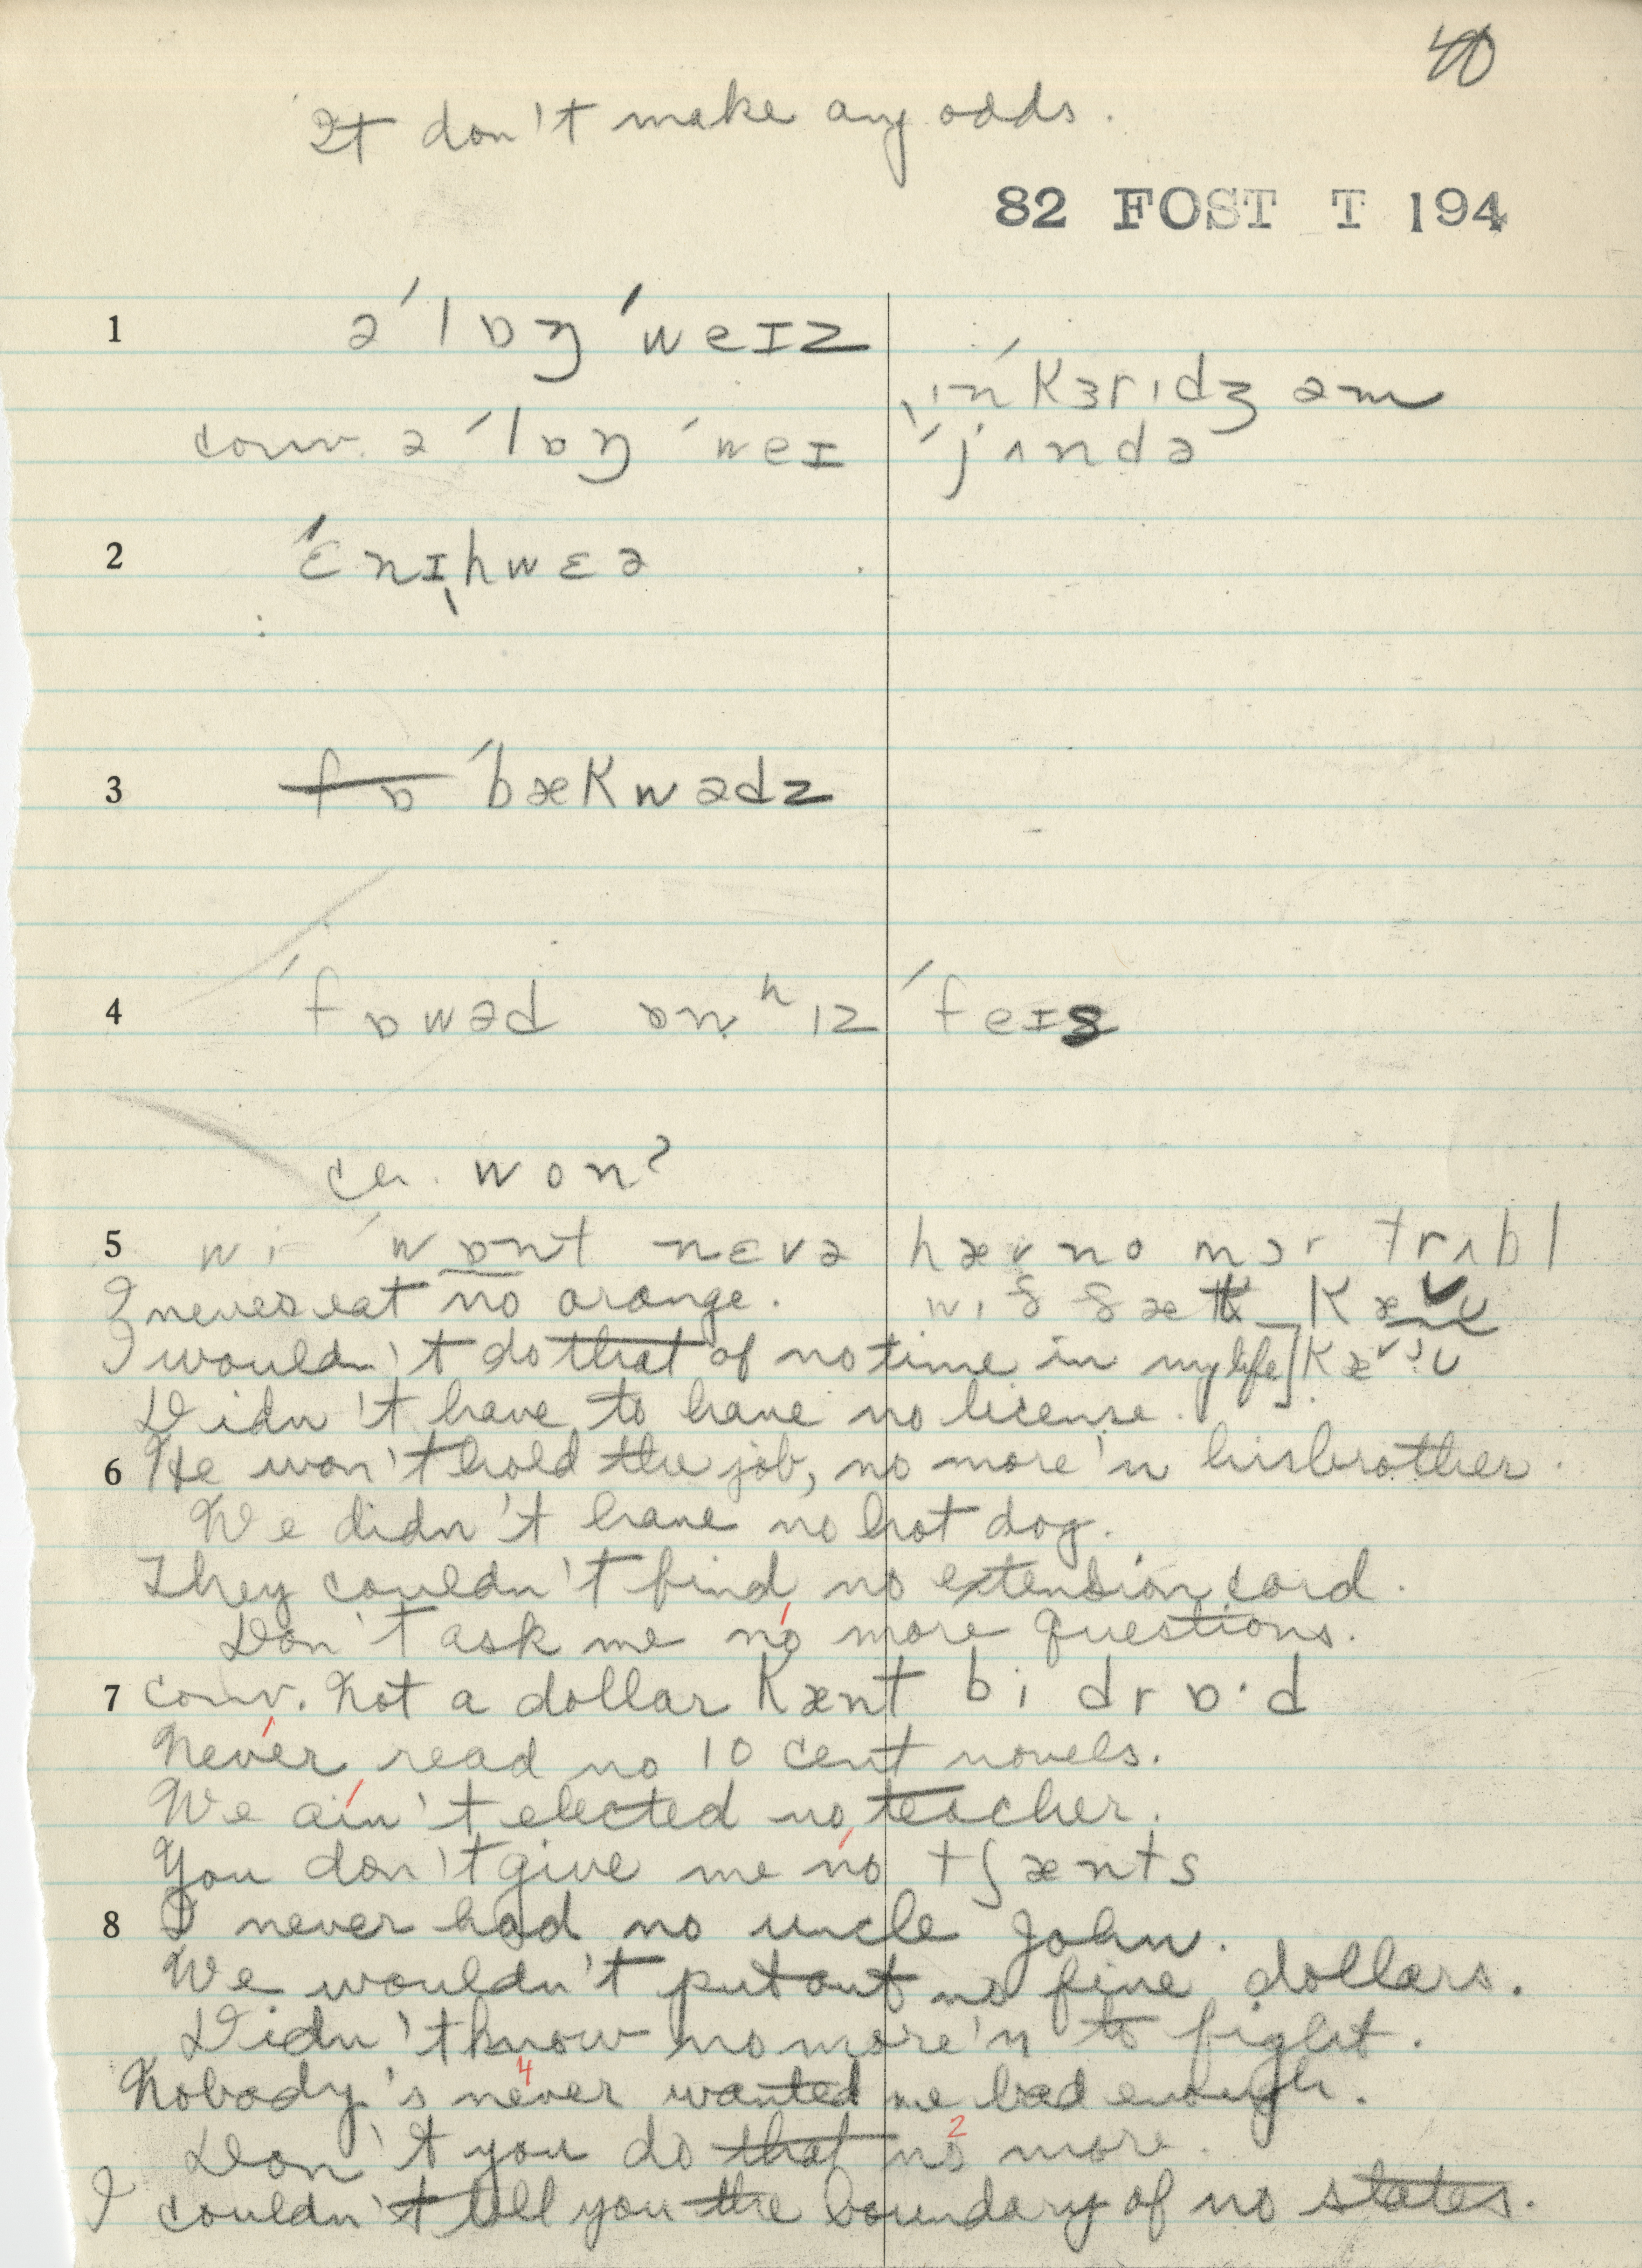 40
It don't make any odds.
82 FOST T 194
1 ə ˈlɒŋ ˈweɪz
ˌɪnˈkɜrɪdʒ əm
conv. ə ˈlɒŋ ˈweɪ ˈjʌndə
2 ˈɛnɪˌhwɛə
3 fɒ ˈbækwədz
4 ˈfɒwəd ɒn ʰɪz ˈfeɪs
cr. won?
5 wi ˈwɒnt nɛvə hæv no mɔr trʌbl
I never eat no orange. wɪð ðæt kæʊ
I wouldn't do that of no time in my life] kæʊ
Didn't have to have no license.
6 He won't hold the job, no more'n his brother.
We didn't have no hot dog.
They couldn't find no extension cord.
Don't ask me no more questions.
7 conv. Not a dollar kænt bi drɒ·d
Never read no 10 cent novels.
We ain't elected no teacher.
You don't give me no tʃænts
8 I never had no uncle John.
We wouldn't put out no five dollars.
Didn't know no more'n to fight.
4
Nobody's never wanted me bad enough.
2
Don't you do that no more.
I couldn't tell you the boundary of no states.